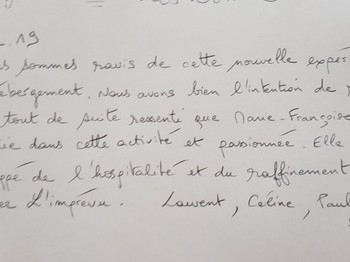 . 19
s sommes ravis de cette nouvelle expéri
ébergement. Nous avons bien l'intention de r
tout de suite ressenti que Marie-Françoise
ée dans cette activité et passionnée. Elle
ppé de l'hospitalité et du raffinement
L'imprévu. Laurent, Céline, Paul